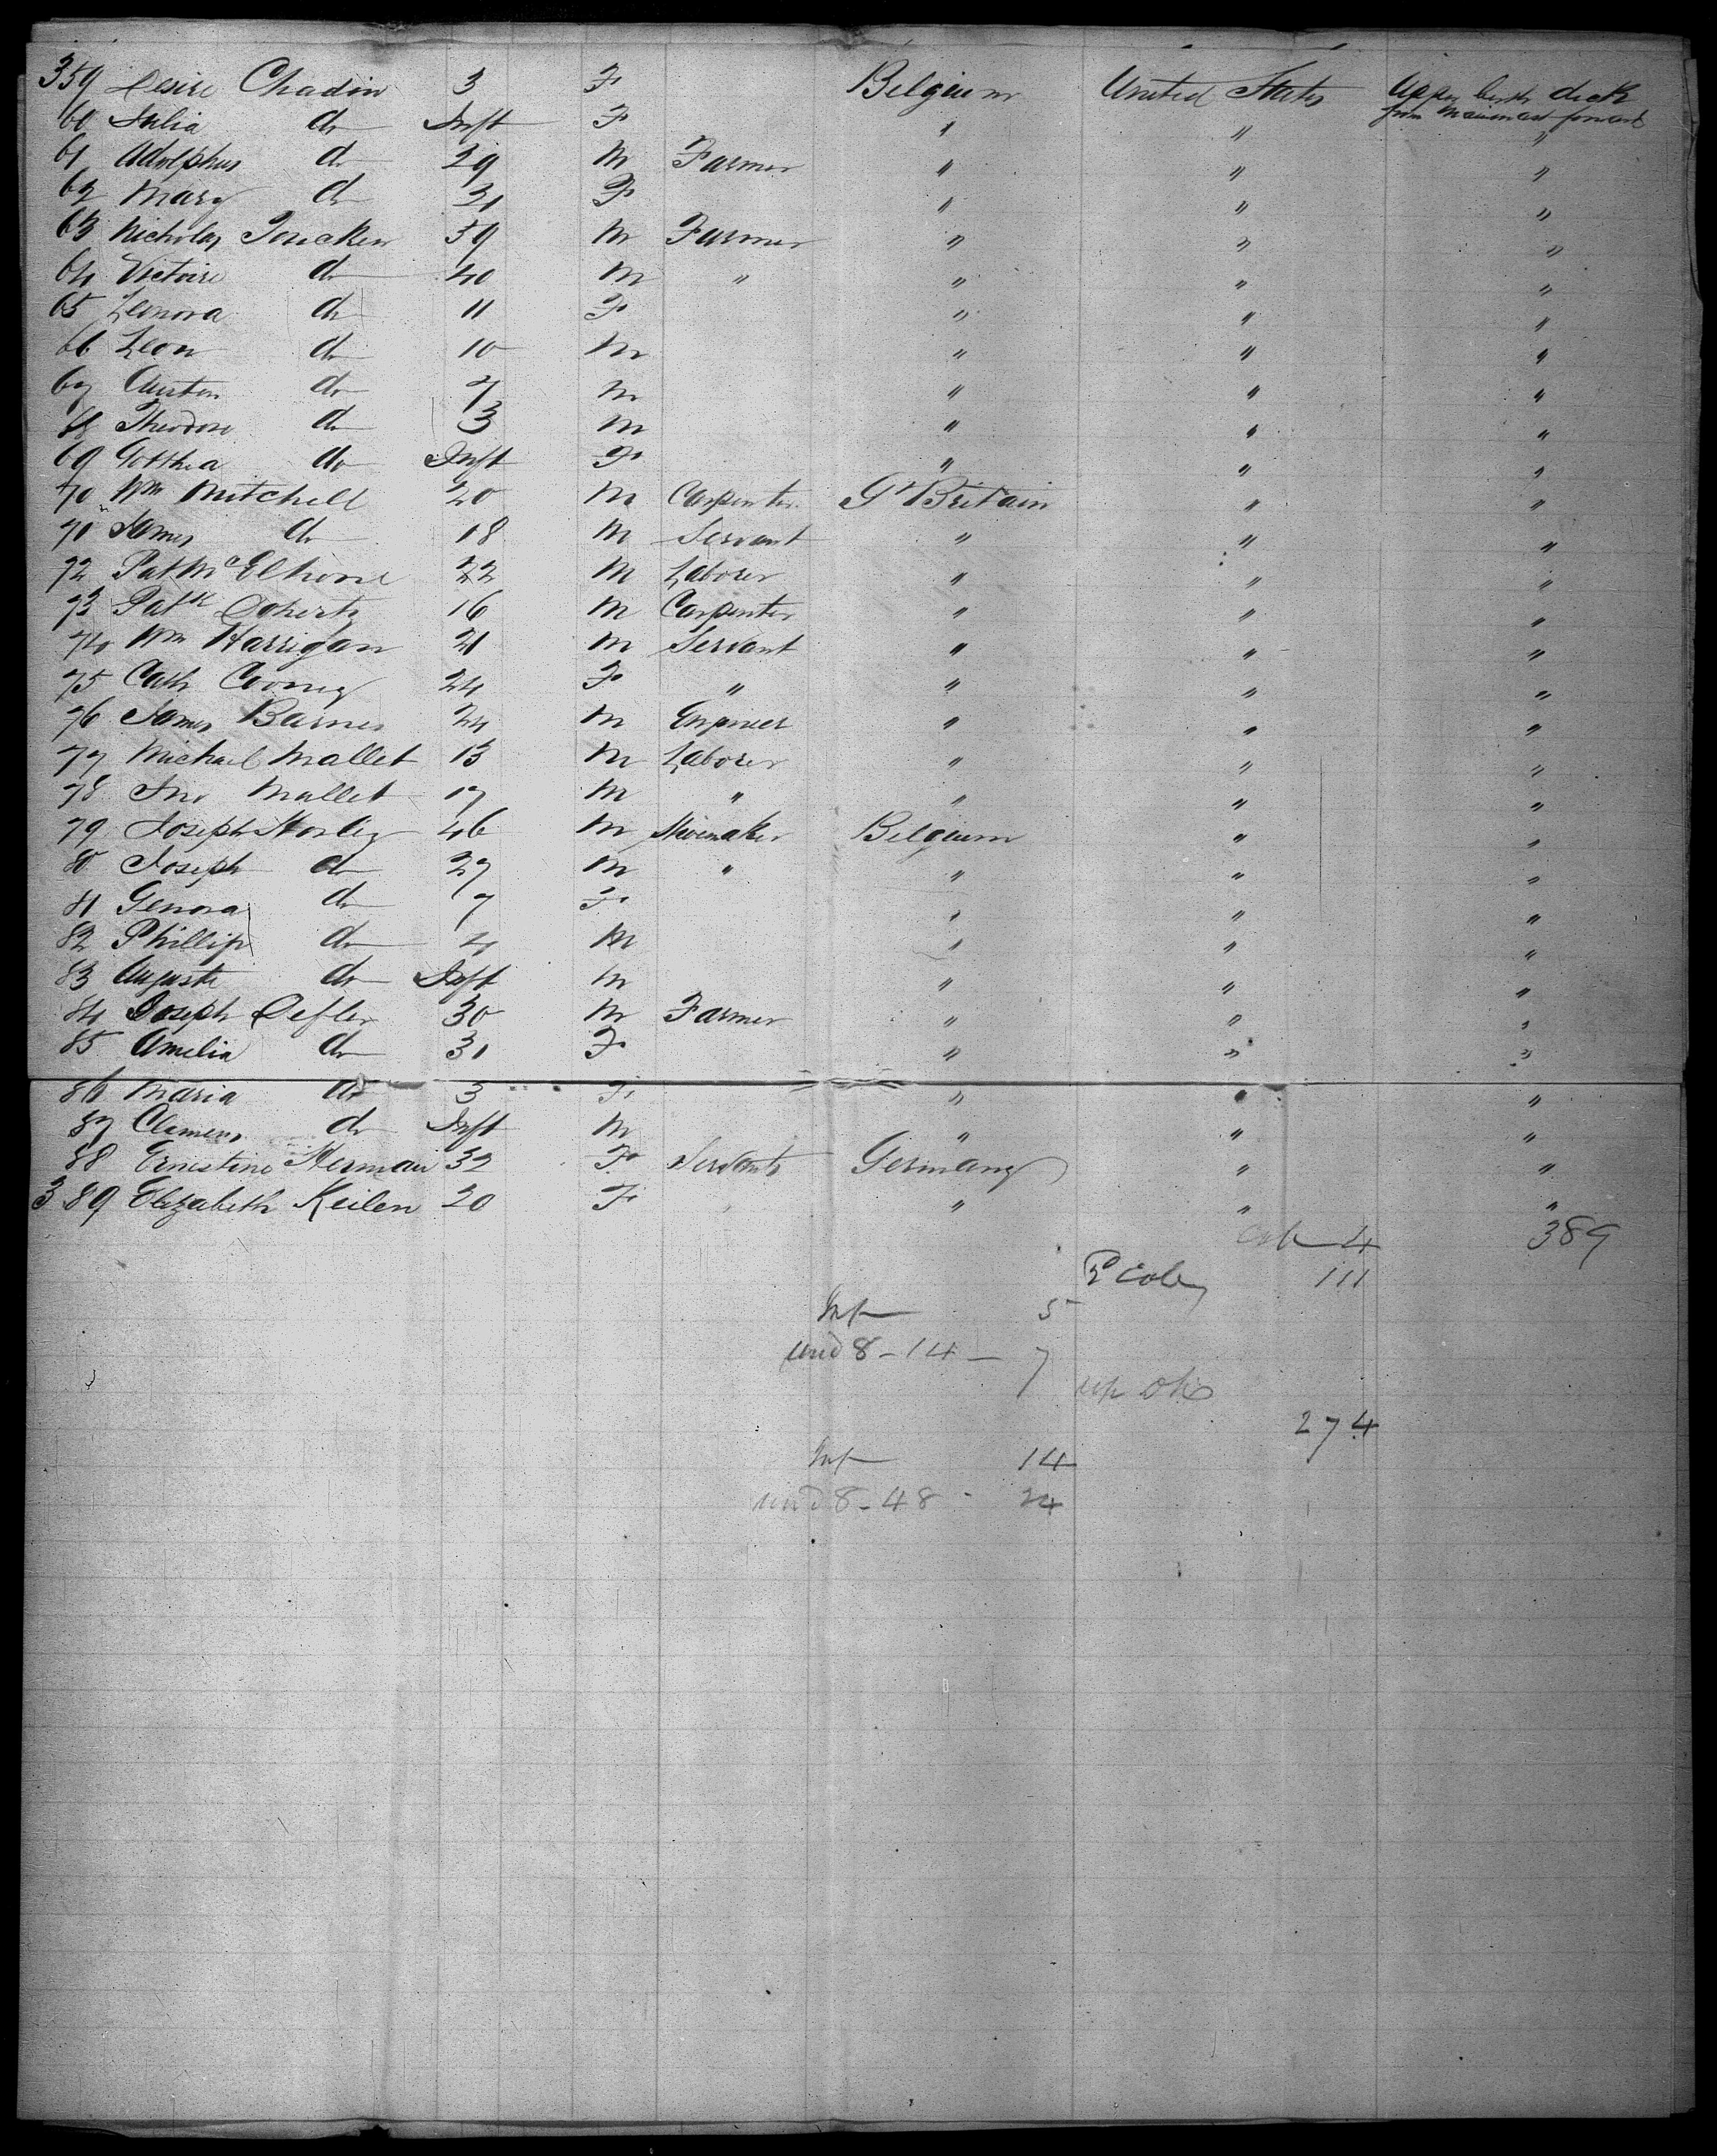 359 Desire Chadin 3 F Belgium United States Upper berth deck
from Mainmast forward
60 Julia do Inft F " " "
61 Adolphus do 29 M Farmer " " "
62 Mary do 31 F " " "
63 Nicholas 39 M Farmer " " "
64 Victoire do 40 M " " " "
65 Leonora do 11 F " " "
66 Leon do 10 M " " "
67 Austen do 7 M " " "
68 Theodore do 3 M " " "
69 do Inft F " " "
70 Wm Mitchell 20 M Carpenter Gt Britain " "
71 James do 18 M Servant " " "
72 Pat 22 M Laborer " " "
73 Patk Doherty 16 M Carpenter " " "
74 Wm Harrigan 21 M Servant " " "
75 Cath Cooney 24 F " " " "
76 James Barnes 24 M Engineer " " "
77 Michael Mallet 13 M Laborer " " "
78 Jno Mallet 17 M " " " "
79 Joseph 46 M Shoemaker Belgium " "
80 Joseph do 27 M " " " "
81 Genora do 7 F " " "
82 Phillip do 4 M " " "
83 Auguste do Inft M " " "
84 Joseph Defler 30 M Farmer " " "
85 Amelia do 31 F " " "
86 Maria do 3 F " " "
87 Clemens do Inft M " " "
88 Ernestine Herman 32 F Servants Germany " "
389 Elizabeth Keilen 20 F " " "
Cab 4 389
111
Inf 5
und 8 - 14 - 7
up dk
274
Inf 14
und 8 - 48 - 24